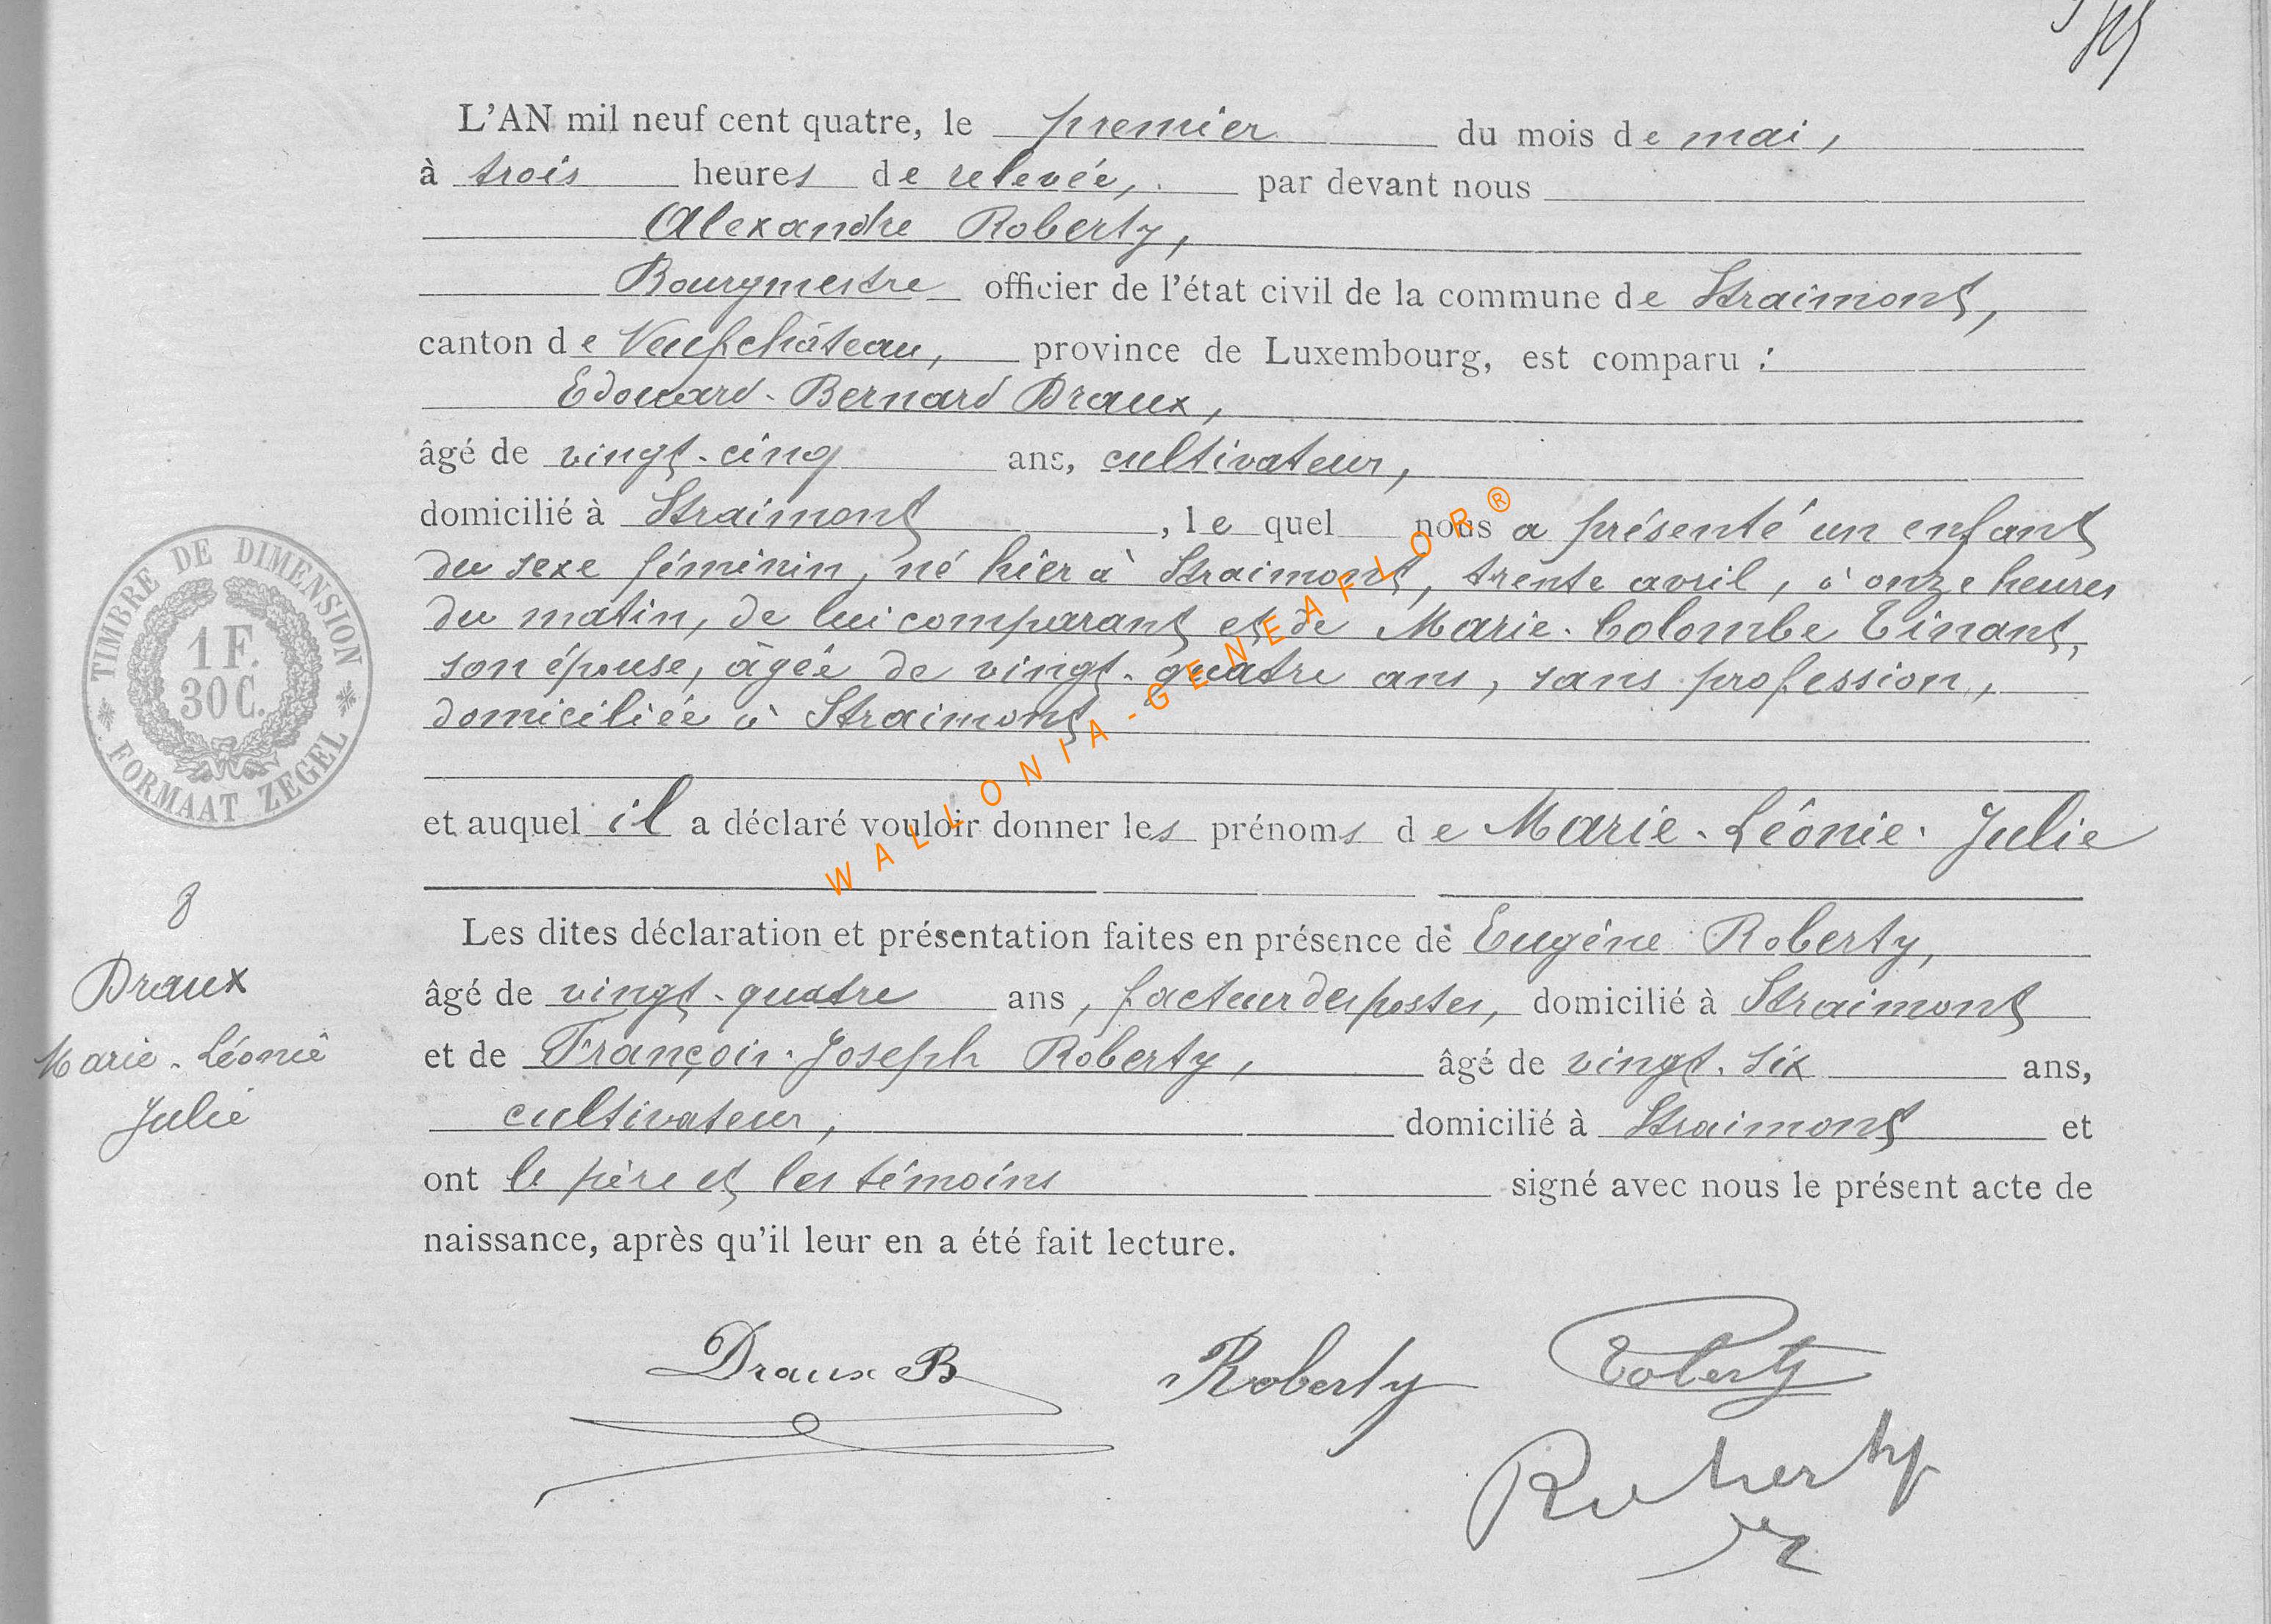 L'AN mil neuf cent quatre, le premier du mois de mai,
à trois heures de relevée, par devant nous
Alexandre Roberty,
Bourgmestre officier de l'état civil de la commune de Straimont,
canton de Neufchâteau, province de Luxembourg, est comparu :
Edouard-Bernard Draux,
âgé de vingt-cinq ans, cultivateur,
domicilié à Straimont, le quel nous a présenté un enfant
du sexe féminin, né hier à Straimont, trente avril, à onze heures
du matin, de lui comparant et de Marie-Colombe Tinant,
son épouse, âgée de vingt-quatre ans, sans profession,
domiciliée à Straimont
et auquel il a déclaré vouloir donner les prénoms de Marie-Léonie-Julie
Les dites déclaration et présentation faites en présence de Eugène Roberty,
âgé de vingt-quatre ans, facteur des postes, domicilié à Straimont
et de François-Joseph Roberty, âgé de vingt-six ans,
cultivateur, domicilié à Straimont et
ont le père et les témoins signé avec nous le présent acte de
naissance, après qu'il leur en a été fait lecture.
Draux B
Roberty
Roberty
Roberty
TIMBRE DE DIMENSION
1 F.
30 C.
FORMAAT ZEGEL
8
Draux
Marie-Léonie
Julie
WALLONIA-GENEAFLOR®